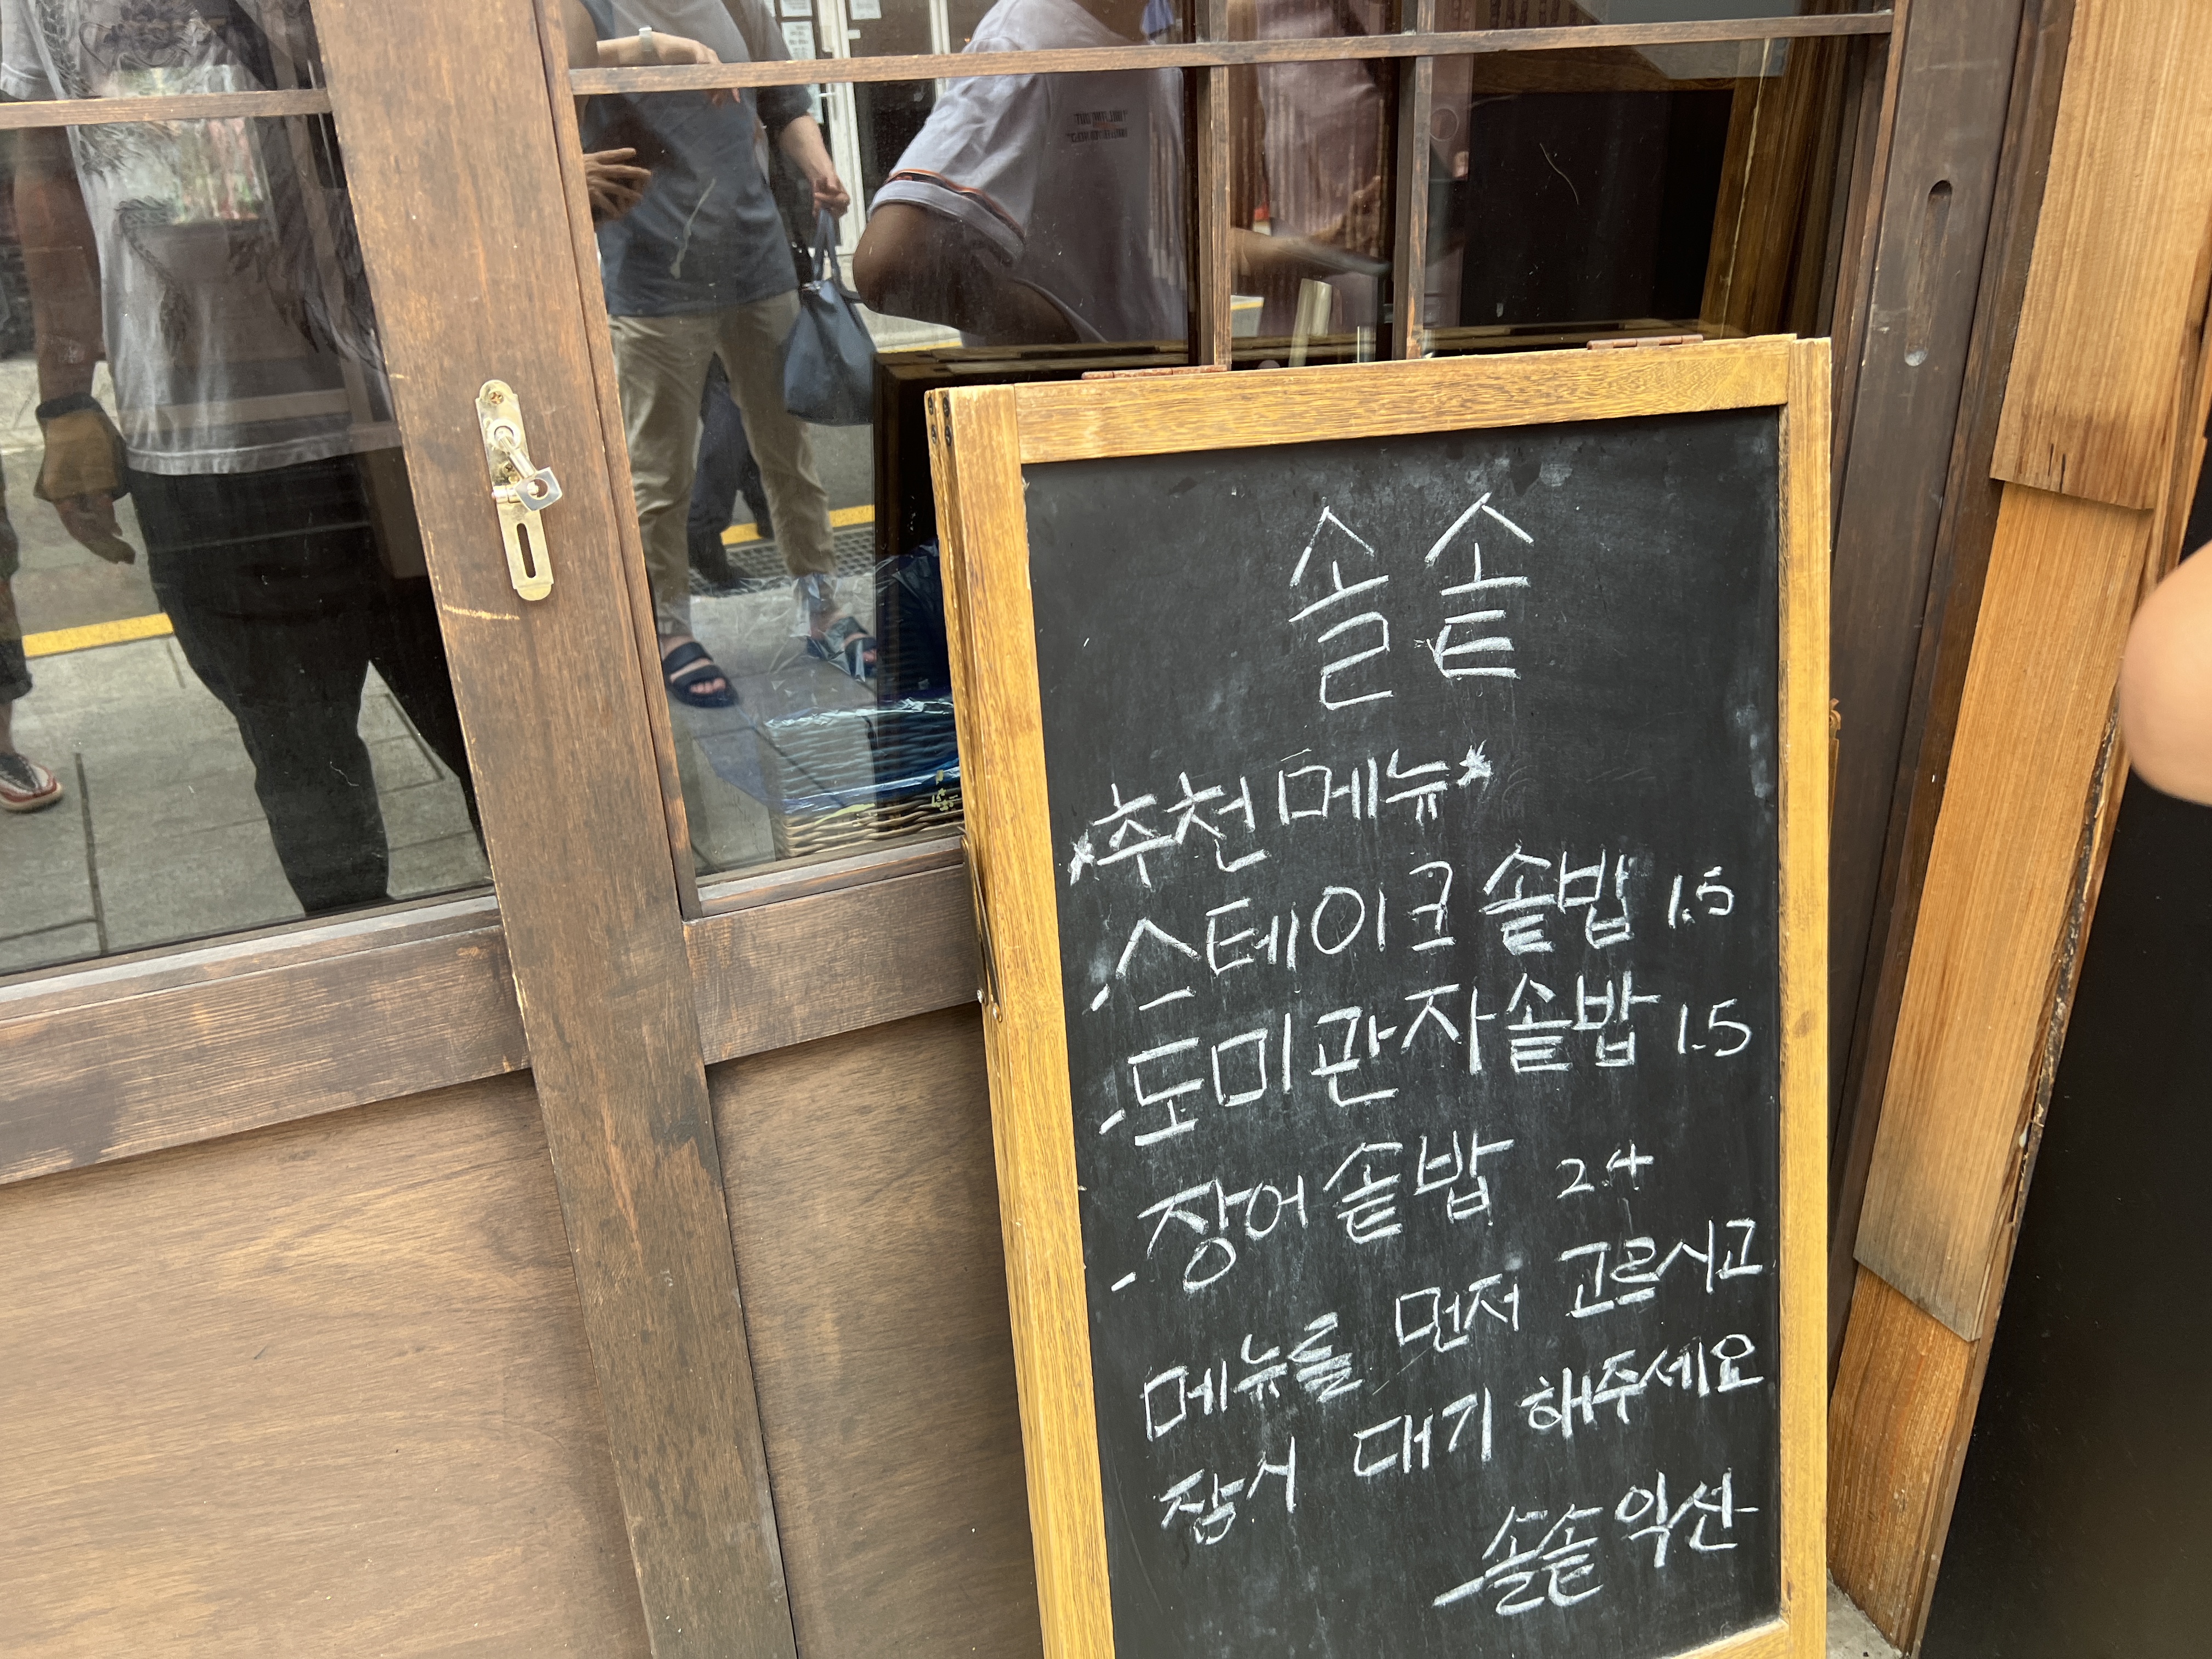 솔솥
*추천메뉴*
- 스테이크솥밥 1.5
- 도미관자솥밥 1.5
- 장어솥밥 2.4
메뉴를 먼저 고르시고
잠시 대기 해주세요
- 솔솥 익산